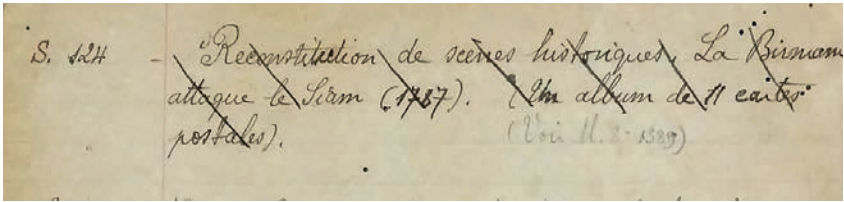 S. 124 - Reconstitution de scènes historiques. La Birman
attaque le Siam (1787). (Un album de 11 cartes
postales). (Voir M. 8-1389)